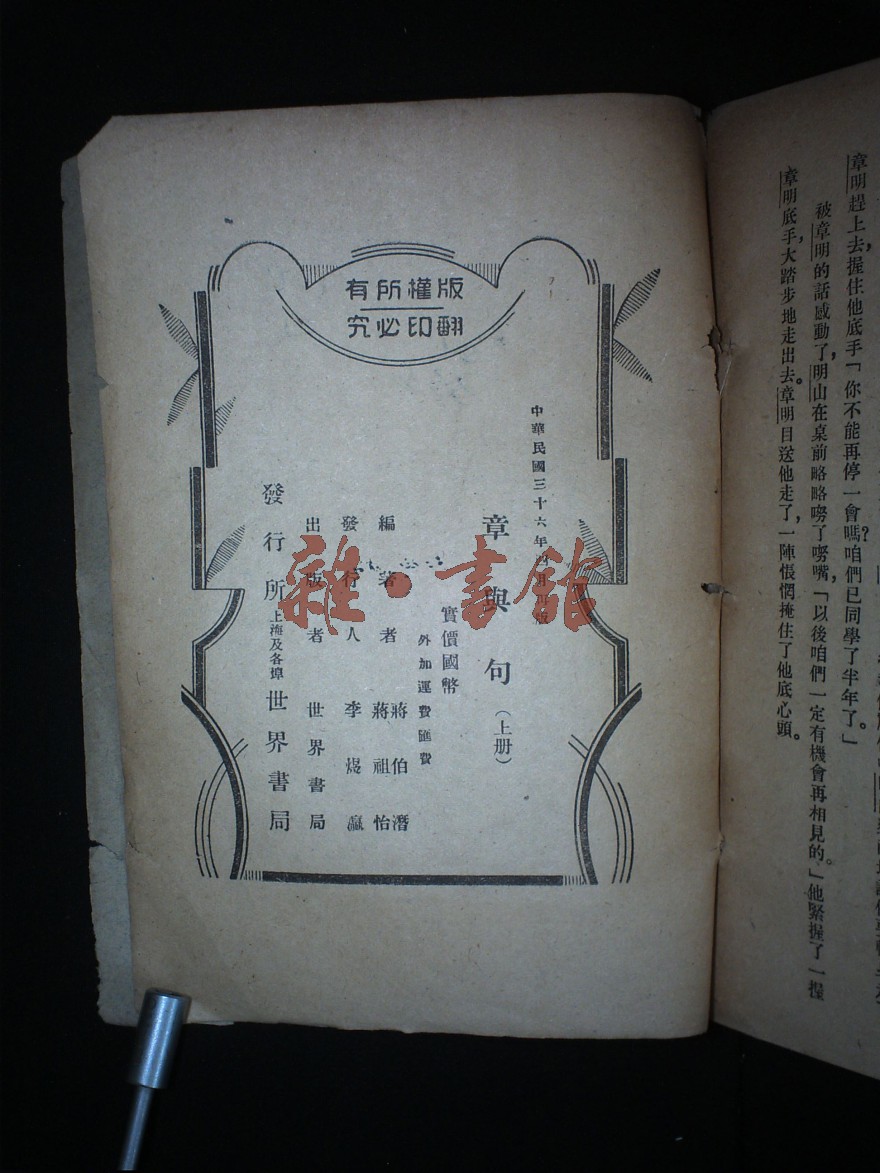 章明趕上去,握住他底手「你不能再停一會嗎?咱們已同學了半年了。」
被章明的話感動了,明山在桌前略略嘮了嘮嘴,「以後咱們一定有機會再相見的。」他緊握了一握
章明底手,大踏步地走出去。章明目送他走了,一陣悵惘掩住了他底心頭。
版權所有
翻印必究
中華民國三十六年四月
章與句(上册)
實價國幣
外加運費匯費
編著者 蔣伯潛
蔣祖怡
發行人 李煜瀛
出版者 世界書局
發行所 上海及各埠 世界書局
雜·書館